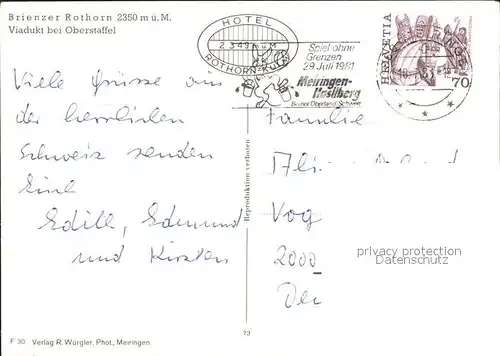 Brienzer Rothorn 2350 m ü. M.
Viadukt bei Oberstaffel
HOTEL
2349 m ü M
ROTHORN-KULM
Spiel ohne
Grenzen
29. Juli 1981
Meiringen-
Hasliberg
Berner Oberland Schweiz
HELVETIA
70
Viele Grüsse aus
der herrlichen
Schweiz senden
Eine
Edith, Edmund
und Kirsten
Familie
Vog
2000
privacy protection
Datenschutz
Reproduktion verboten
73
F 30 Verlag R. Würgler, Phot., Meiringen